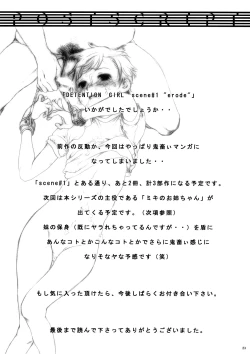 POSTSCRIPT
「DETENTION GIRL scene#1 "erode"」
いかがでしたでしょうか・・
前作の反動か、今回はやっぱり鬼畜いマンガに
なってしまいました・・
「scene#1」とある通り、あと2冊、計3部作になる予定です。
次回は本シリーズの主役である「ミキのお姉ちゃん」が
出てくる予定です。(次頃参照)
妹の保身(既にヤラれちゃってるんですが・・)を盾に
あんなコトとかこんなコトとかでさらに鬼畜ぃ感じに
なりそなヤな予感です(笑)
もし気に入った頂けたら、今後しばらくお付き合い下さい。
最後まで読んで下さってありがとうございました。